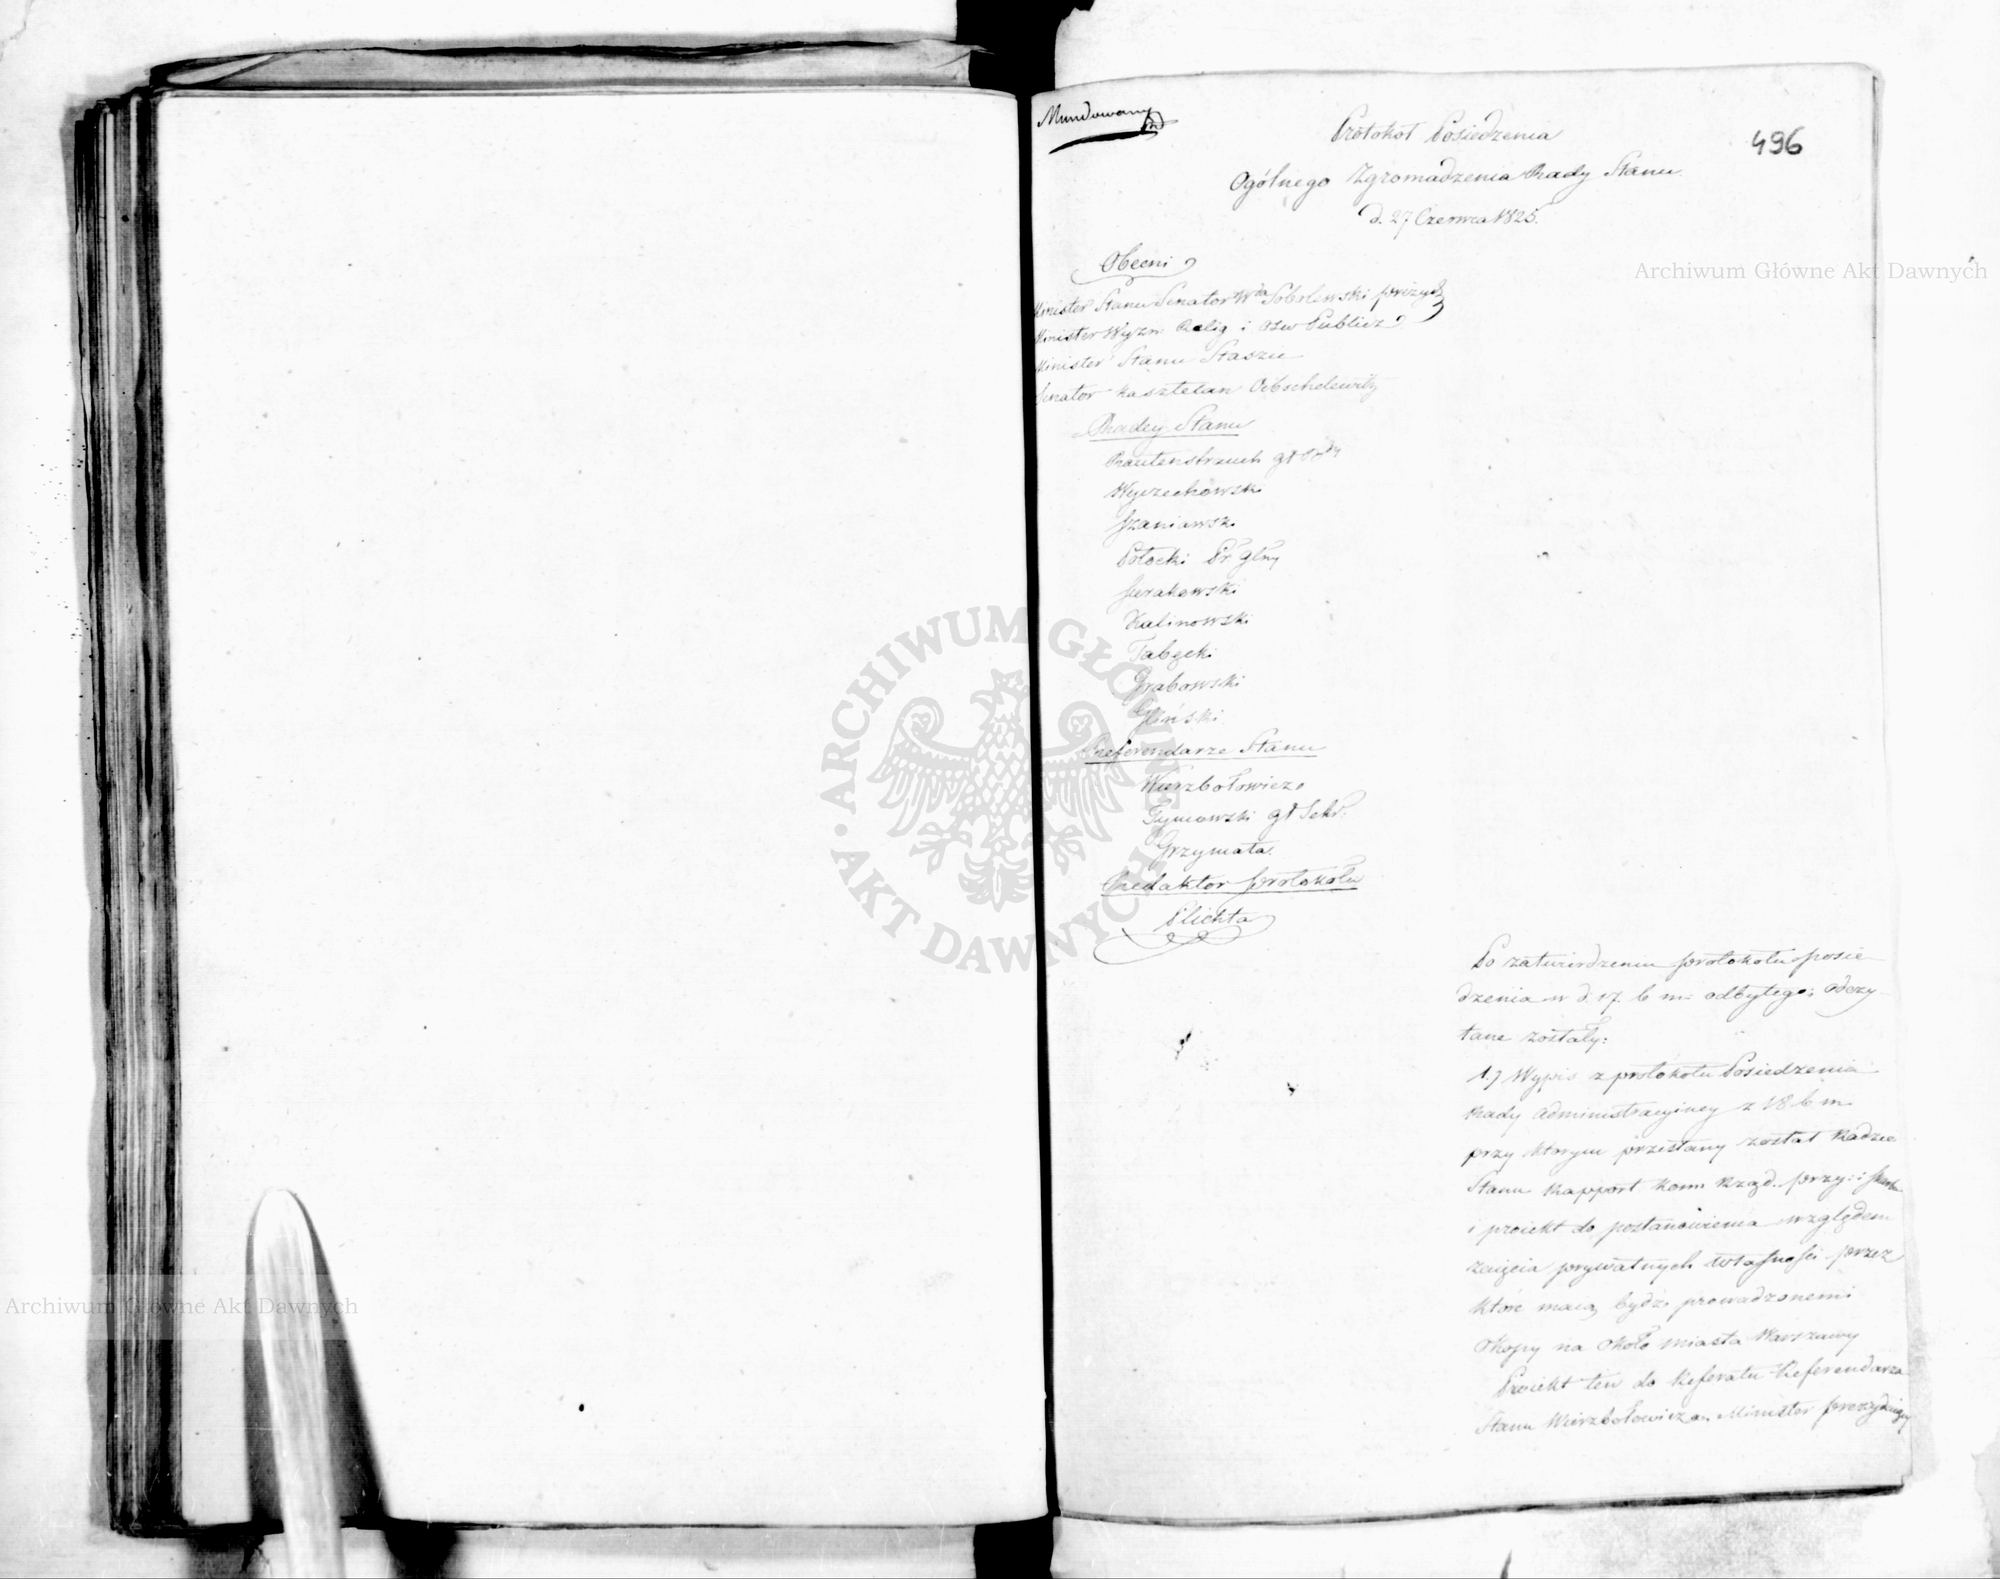 Mundowany
496
Protokół Posiedzenia
Ogólnego Zgromadzenia Rady Stanu
d. 27 Czerwca 1825.
Obecni
Minister Stanu Senator Wda Sobolewski prezyd
Minister Wyzn: Relig i Ośw Publicz
Minister Stanu Staszic
Senator Kasztelan
Radcy Stanu
Rautenstrauch
Wyczechowski
Szaniawski
Potocki Pr glny
Surakowski
Kalinowski
Tabęcki
Grabowski
Gliński
Referendarze Stanu
Wierzbołowicz
Tymowski gł Sekr.
Grzymała
Redaktor protokołu
Plichta
Po zatwierdzeniu protokołu posie-
dzenia w d. 17. b m: odbytego; odczy-
tane zostały:
1.) Wypis z protokołu Posiedzenia
Rady administracyiney z 18 b m
przy którym przesłany został Radzie
Stanu Rapport Kom Rząd. przy: i Skarbu
i proiekt do postanowienia względem
zaięcia prywatnych własności przez
które maią bydź prowadzonemi
Okopy na około miasta Warszawy
Proiekt ten do Referatu Referendarza
Stanu Wierzbołowicza Minister prezyduiący
Archiwum Główne Akt Dawnych
ARCHIWUM GŁÓWNE AKT DAWNYCH
Archiwum Główne Akt Dawnych